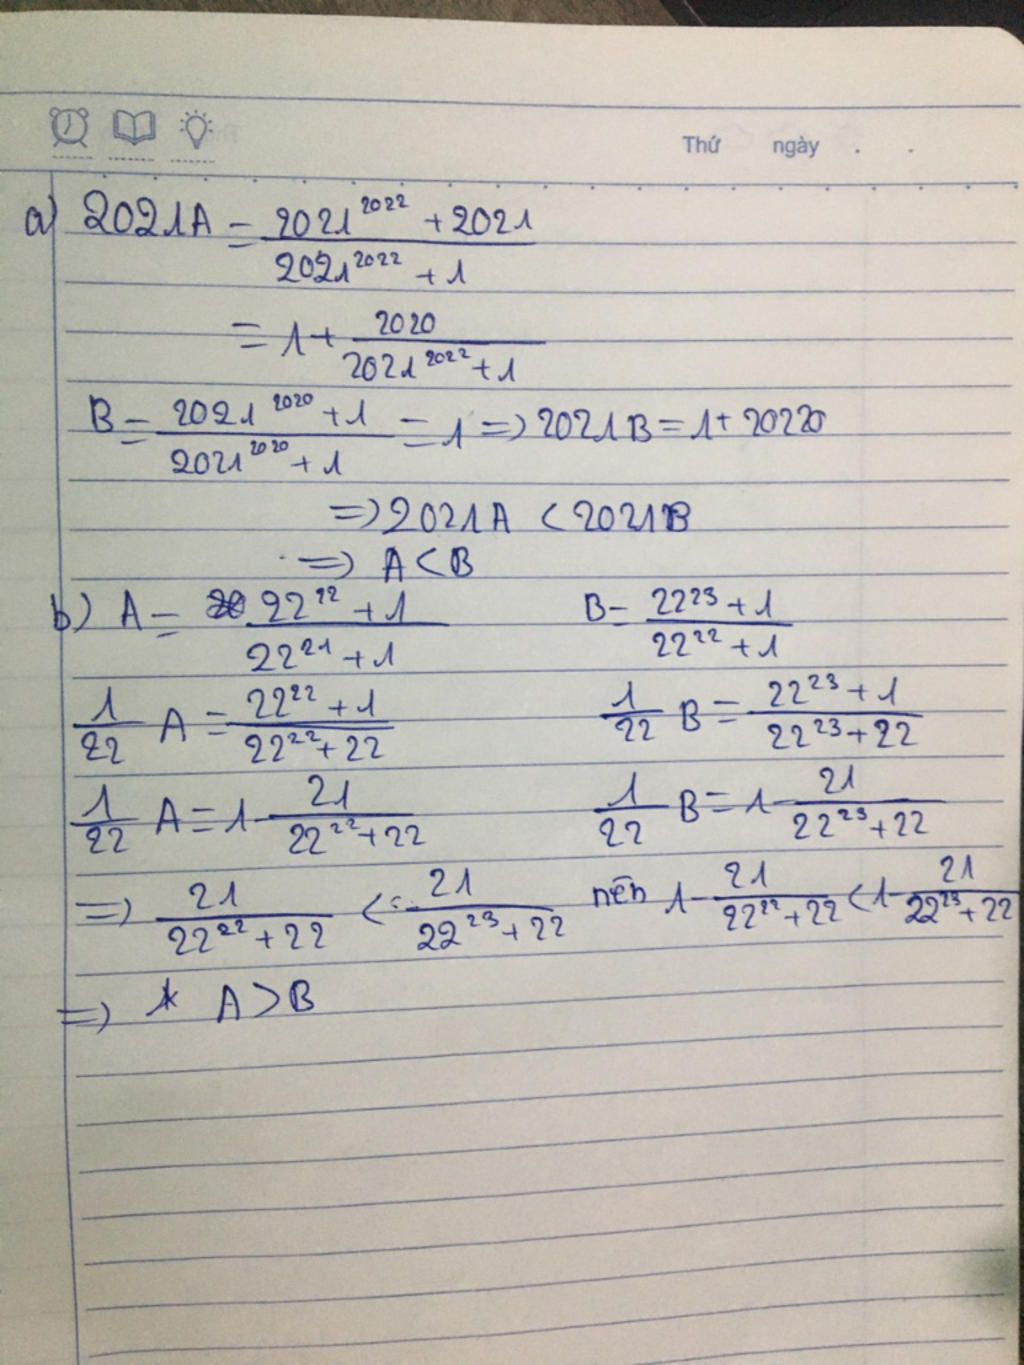 Thứ ngày . .
a) 2021A = \frac{2021^{2022} + 2021}{2021^{2022} + 1}
= 1 + \frac{2020}{2021^{2022} + 1}
B = \frac{2021^{2020} + 1}{2021^{2020} + 1} = 1 => 2021B = 1 + 20220
=> 2021A < 2021B
=> A < B
b) A = \frac{22^{22} + 1}{22^{21} + 1} B = \frac{22^{23} + 1}{22^{22} + 1}
\frac{1}{22} A = \frac{22^{22} + 1}{22^{22} + 22} \frac{1}{22} B = \frac{22^{23} + 1}{22^{23} + 22}
\frac{1}{22} A = 1 - \frac{21}{22^{22} + 22} \frac{1}{22} B = 1 - \frac{21}{22^{23} + 22}
=> \frac{21}{22^{22} + 22} < \frac{21}{22^{23} + 22} nên 1 - \frac{21}{22^{22} + 22} < 1 - \frac{21}{22^{23} + 22}
=> A > B